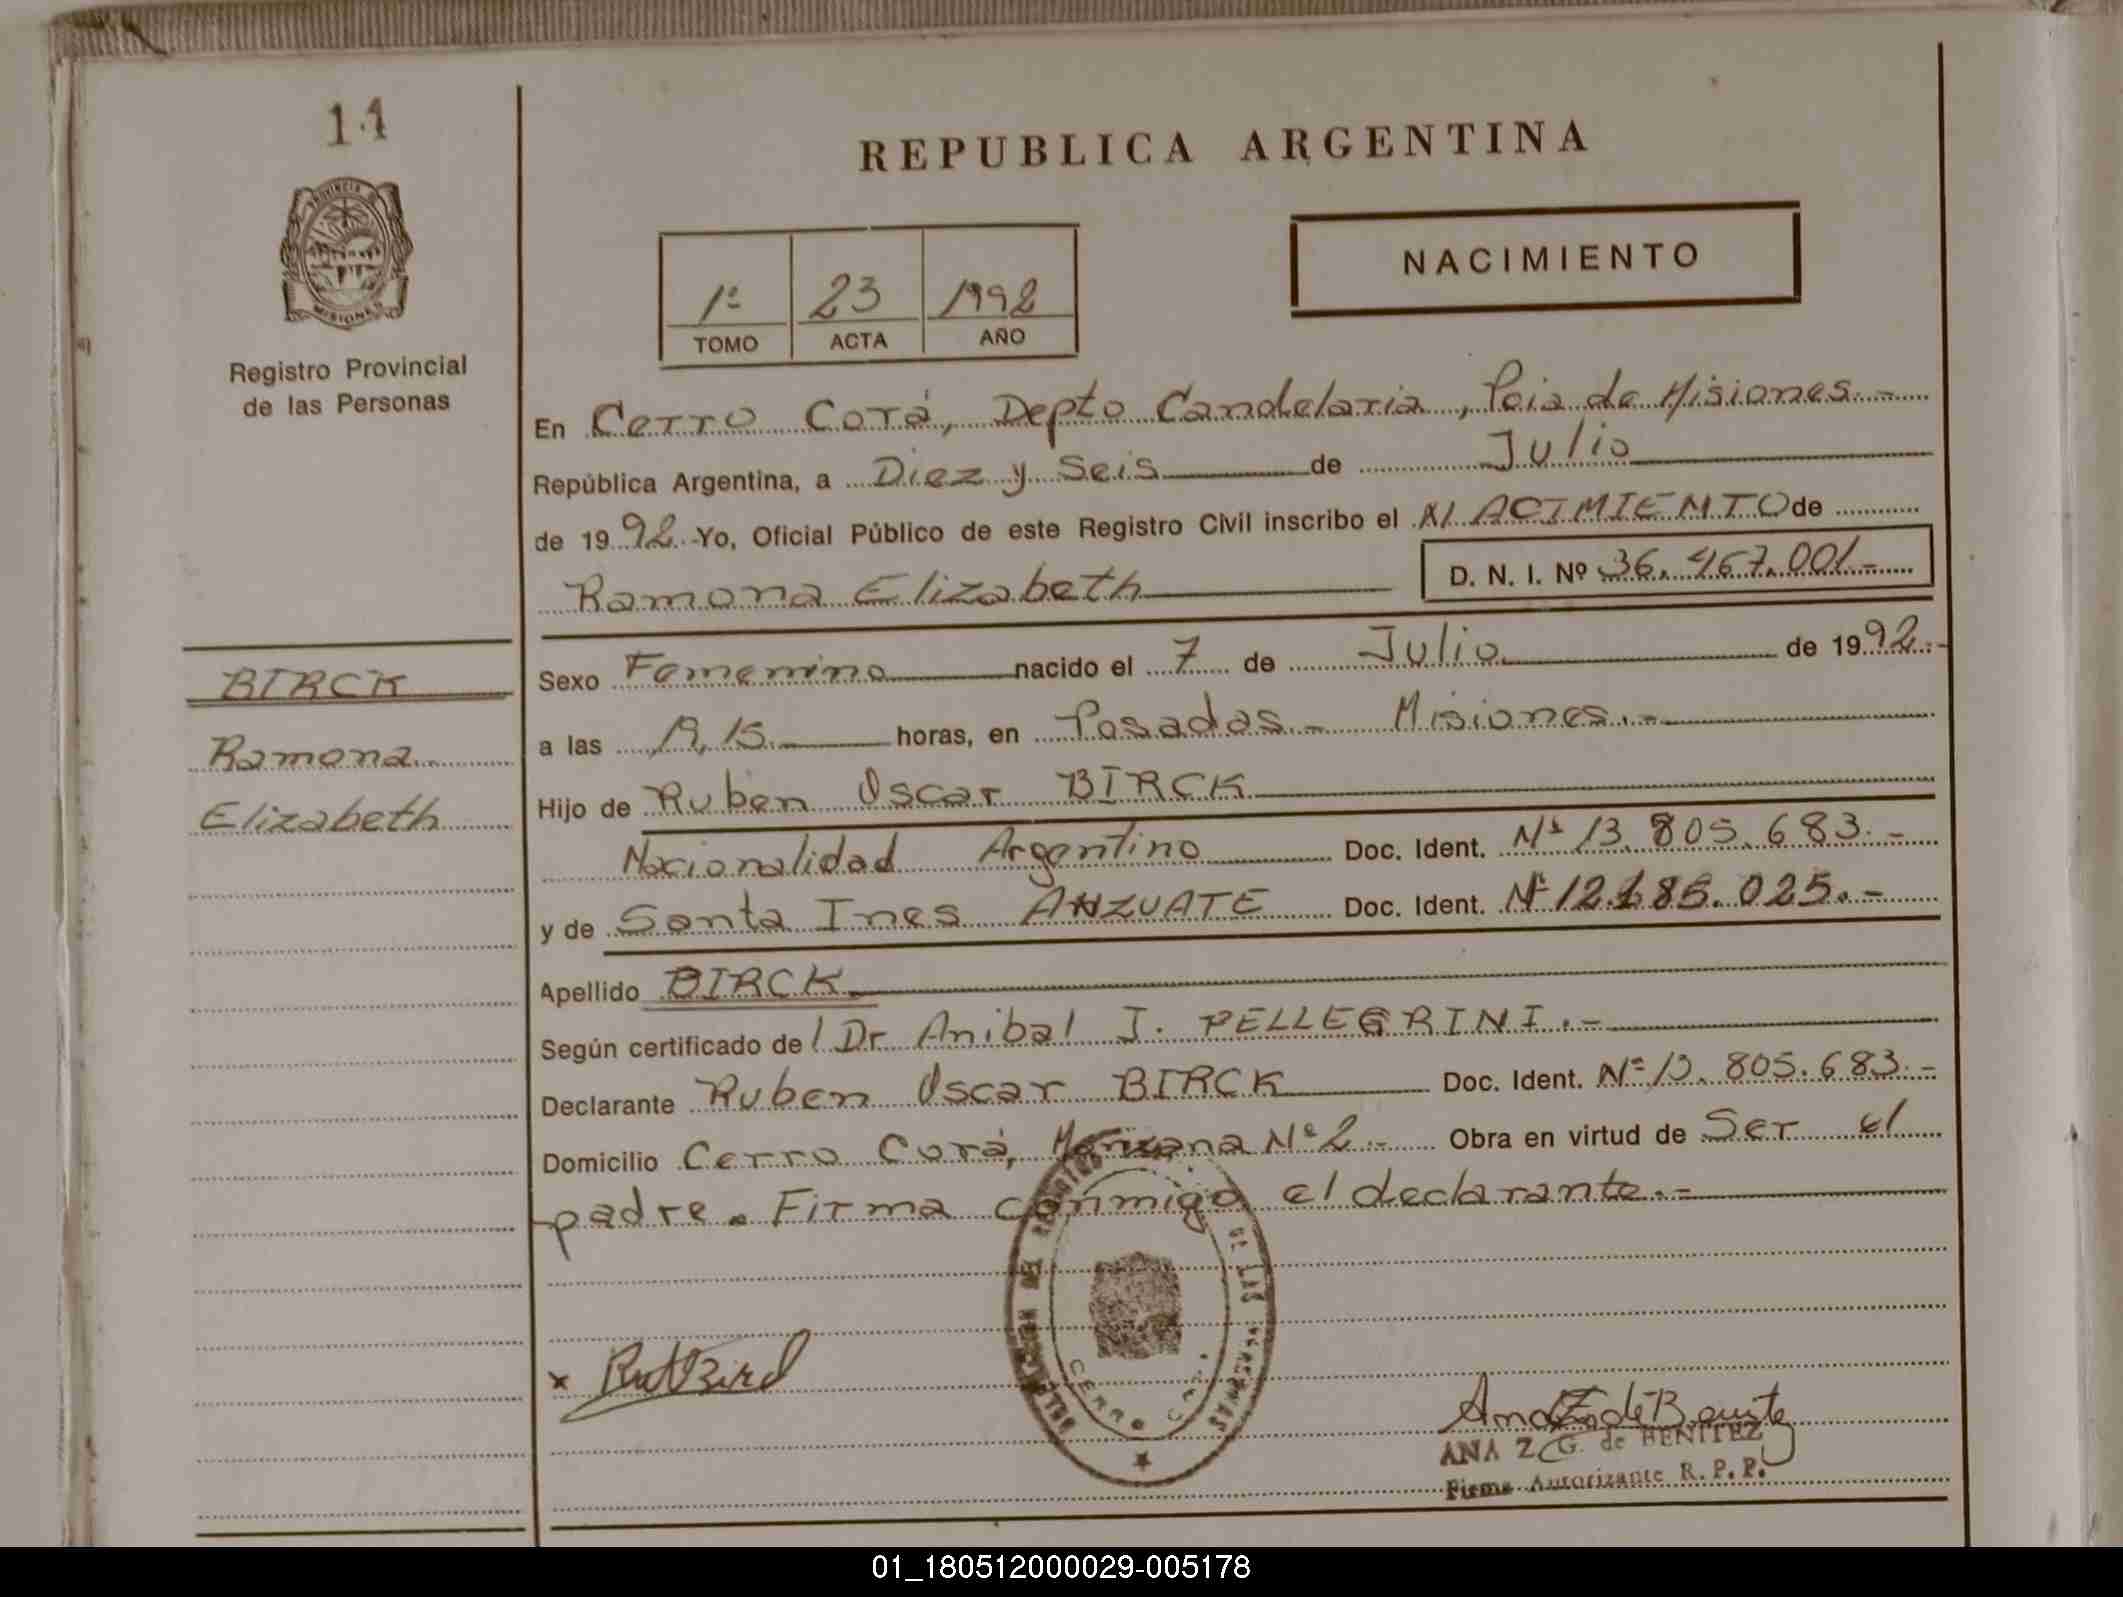 14
REPUBLICA ARGENTINA
PROVINCIA DE
MISIONES
Registro Provincial
de las Personas
NACIMIENTO
1º 23 1992
TOMO ACTA AÑO
En Cerro Corá, Depto Candelaria, Pcia de Misiones.-
República Argentina, a Diez y Seis de Julio
de 1992. Yo, Oficial Público de este Registro Civil inscribo el NACIMIENTO de
Ramona Elizabeth D. N. I. Nº 36.467.001.-
BIRCK
Ramona
Elizabeth
Sexo Femenino nacido el 7 de Julio de 1992.-
a las 19,15 horas, en Posadas - Misiones.-
Hijo de Ruben Oscar BIRCK
Nacionalidad Argentino Doc. Ident. Nº 13.805.683.-
y de Santa Ines ANZUATE Doc. Ident. Nº 12.185.025.-
Apellido BIRCK
Según certificado del Dr Anibal J. PELLEGRINI.-
Declarante Ruben Oscar BIRCK Doc. Ident. Nº 13.805.683.-
Domicilio Cerro Corá, Manzana Nº 2.- Obra en virtud de Ser el
padre. Firma conmigo el declarante.-
DEL REGISTRO
DE LAS PERSONAS
CERRO CORA
x
ANA Z. G. de BENITEZ
Firma Autorizante R. P. P.
01_180512000029-005178